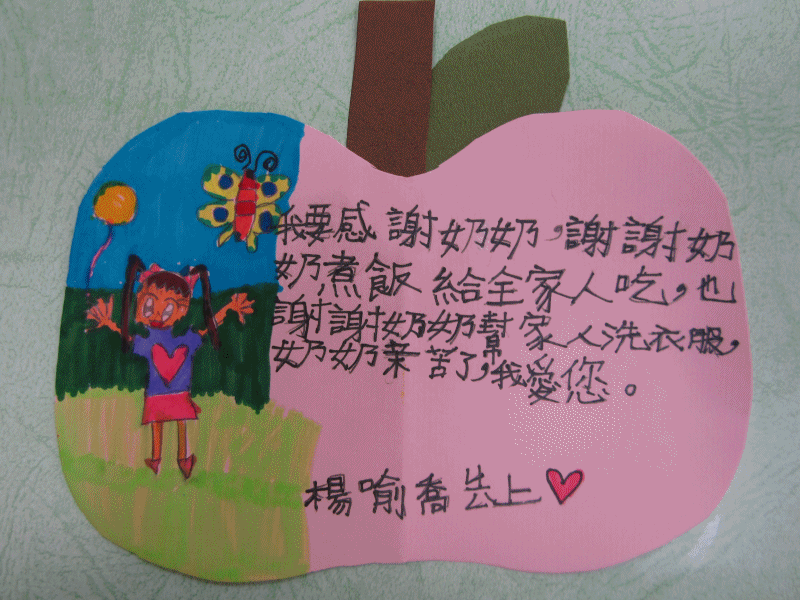 我要感謝奶奶，謝謝奶
奶煮飯給全家人吃，也
謝謝奶奶幫家人洗衣服，
奶奶辛苦了，我愛您。
楊喻喬 上